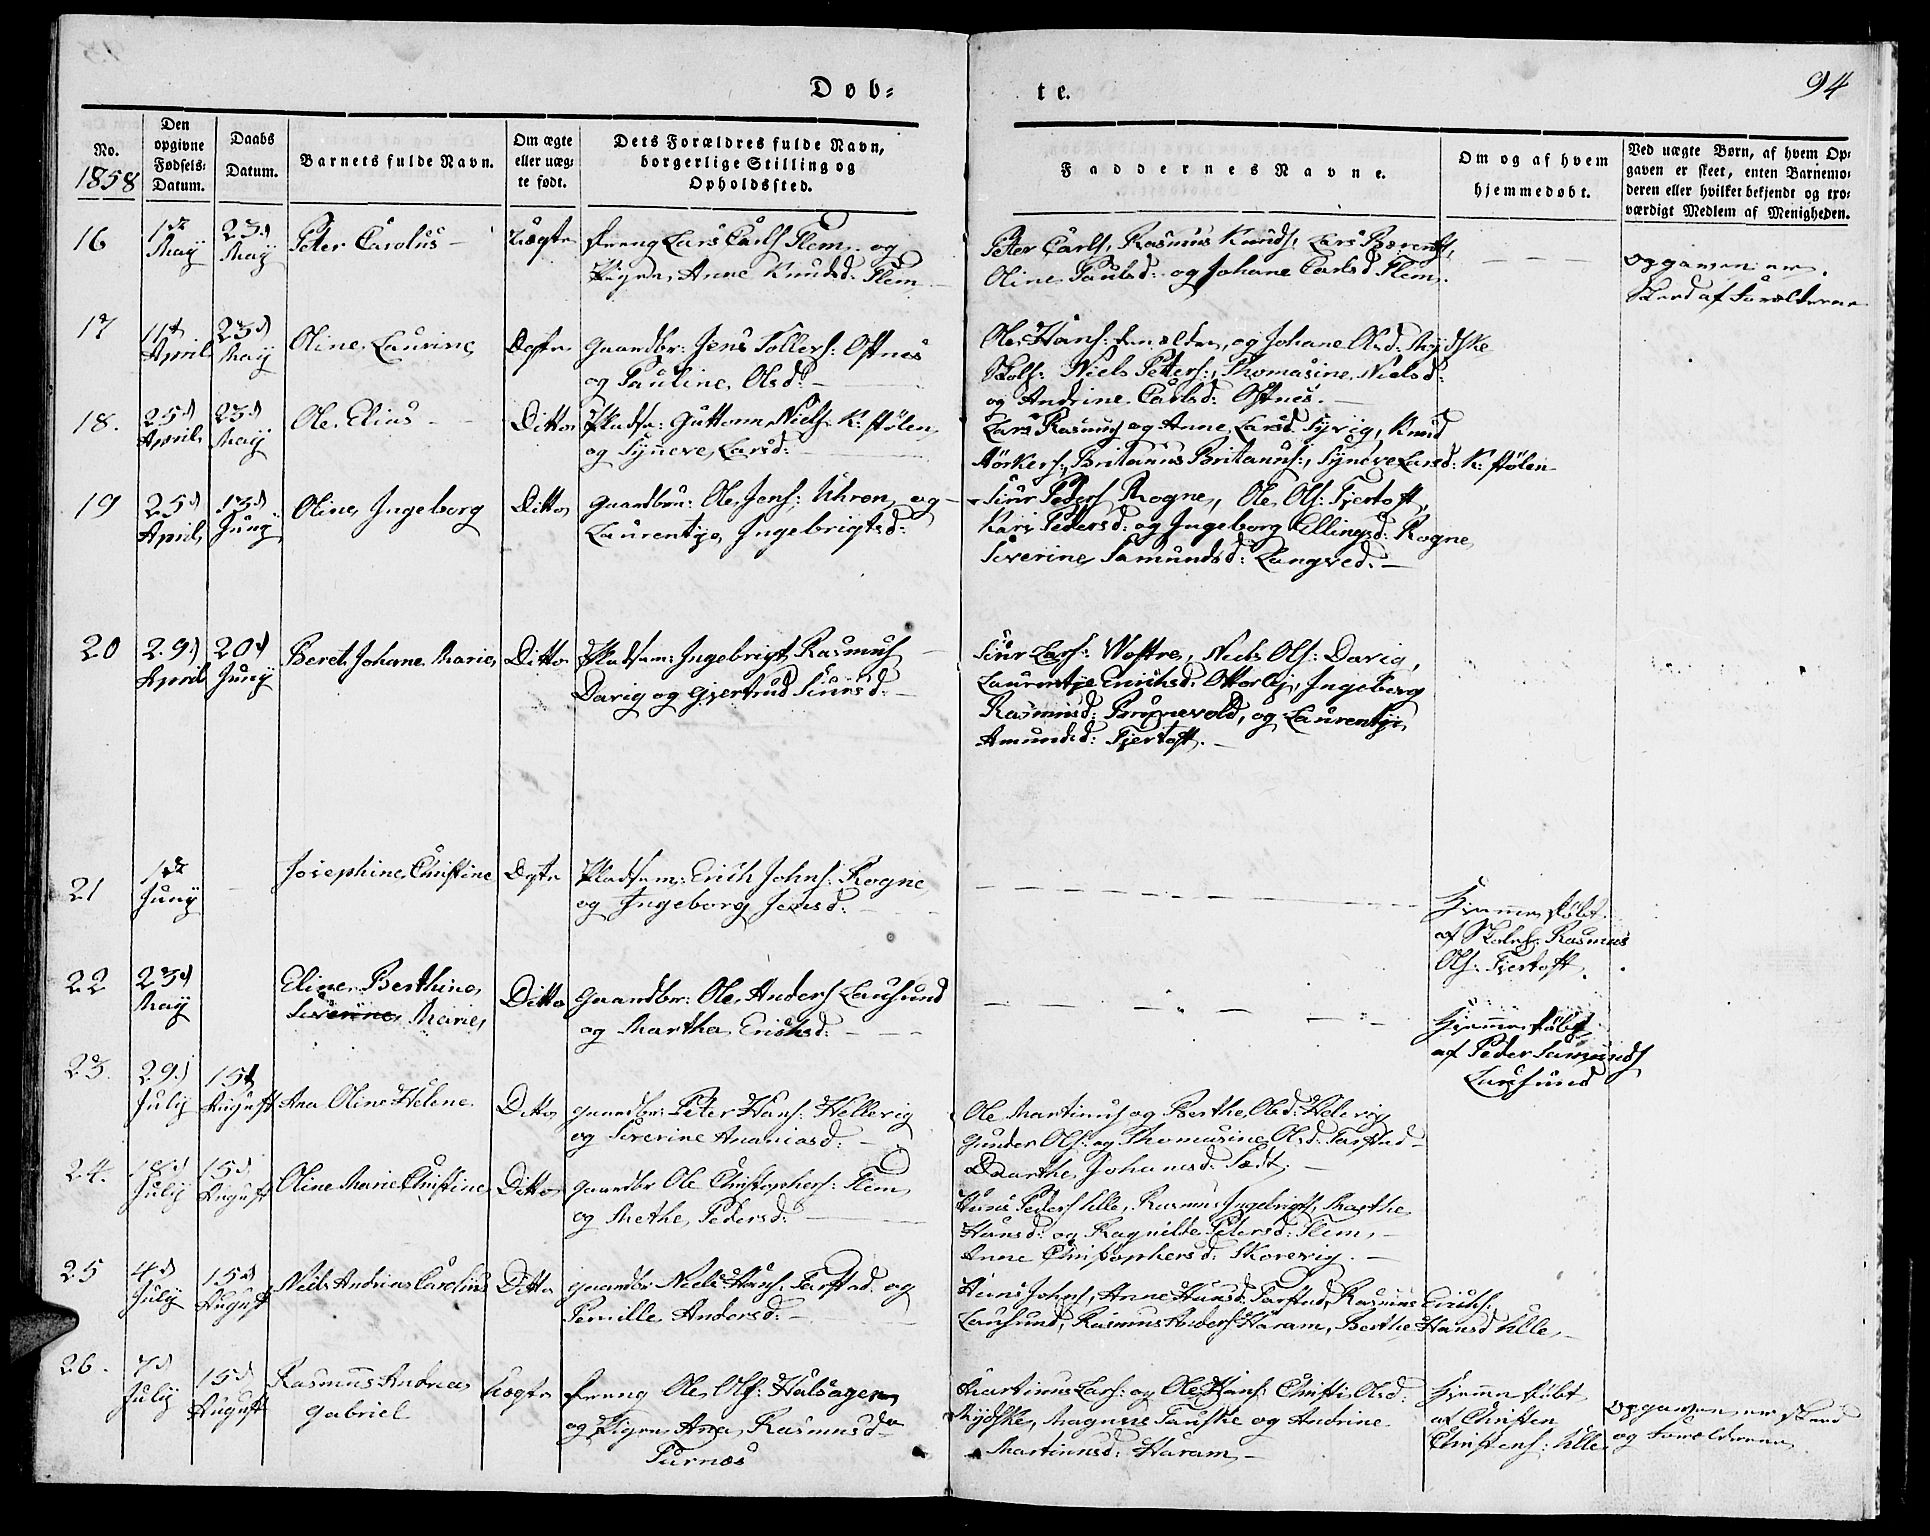 Døb-
te.
94
No.
1858
Den opgivne Fødsels-Datum.
Daabs Datum.
Barnets fulde Navn.
Om ægte eller uæg-te født.
Dets Forældres fulde Navn, borgerlige Stilling og Opholdssted.
Faddernes Navne.
Om og af hvem hjemmedøbt.
Ved uægte Børn, af hvem Op-gaven er skeet, enten Barnemo-deren eller hvilket bekjendt og tro-værdigt Medlem af Menigheden.
16
1ste May
23d May
Peter Carolus
Uægte
Dreng Lars Carls Flem og
Pigen Anne Knudsd: Flem
Peter Carls, Rasmus Knuds, Lars Bærents,
Oline Paulsd: og Johane Carlsd Flem.
Opgaven er
skeed af Forælderne
17
11t April
23d May
Oline Laurine
Ægte
Gaardbr: Jens Tollefs: Ostnes
og Pauline Olsd:
Ole Hans: den eldre, og Johane Olsd:
Niels Petters:, Thomasine Nielsd:
og Andrine Carlsd: Ostnes.
18.
25d April
23d May
Ole Elias
Ditto
Pladsm: Guttorm Niels K:stølen
og Syneve Larsd:
Lars Rasmus og Anne Larsd Syvig, Knud
Britanus Britanus:, Syneve Larsd: K:stølen
19
25d April
13d Juny
Oline Ingeborg
Ditto
Gaardbru: Ole Jens: Uhren og
Laurentje Ingebrigtsd:
Siur Peders Rogne, Ole Ols: Fjertoft,
Kari Pedersd: og Ingeborg Ellingsd: Rogne
Severine Samundsd: Longved.
20
29d April
20d Juny
Beret Johane Marie
Ditto
Pladsm: Ingebrigt Rasmus
Davig og Gjertrud Siursd:
Siur Lars: Wostre, Niels Ols: Davig,
Laurentje Erichsd: Otterlej, Ingeborg
Rasmusd: Brunevold, og Laurentje
Amundsd: Fjertoft.
21
1ste Juny
Josephine Christine
Ægte
Pladsm: Erich Johns: Rogne
og Ingeborg Jensd:
Hjemmedøbt
af Skoleh. Rasmus
Ols: Fjertoft
22
23d May
Eline Berthine
Severine Marie
Ditto
Gaardbr: Ole Anders Lausund
og Martha Erichsd:
Hjemmedøbt
af Peder Samunds
Lausund
23.
29d July
15d August
Ane Oline Helene
Ditto
Gaardbr: Peter Hans: Hellevig
og Severine Ananiasd:
Ole Martinus og Berthe Olsd: Helevig
Gunder Ols: og Thomasine Olsd: Farstad
Marthe Johansd: Sædt.
24.
18d July
15d August
Oline Marie Christine
Ditto
Gaardbr Ole Christophers: Flem
og Methe Pedersd:
Hans Peders Ulle, Rasmus Ingebrigts, Marthe
Hansd: og Ragnilde Petersd: Flem,
Anne Christophersd: Skorevig.
25
4d July
15d August
Niels Andrias Carolius
Ditto
Gaardbr Niels Hans: Farstad og
Pernille Andersd:
Hans Johns, Anne Hansd: Farstad, Rasmus Erichs:
Lausund, Rasmus Anders Haram, Berthe Hansd Ulle,
26.
7d July
15d August
Rasmus Andrea
Gabriel
Uægte
Dreng Ole Ols: Hulsagen
og Pigen Ana Rasmusd
Turnæs
Martinus Lars: og Ole Hans: Christi Olsd:
Magnus og Andrine
Martinusd: Haram,
Hjemmedøbt
af Christen
Christens: Ulle
Opgaven er skeed
og Forælderne.